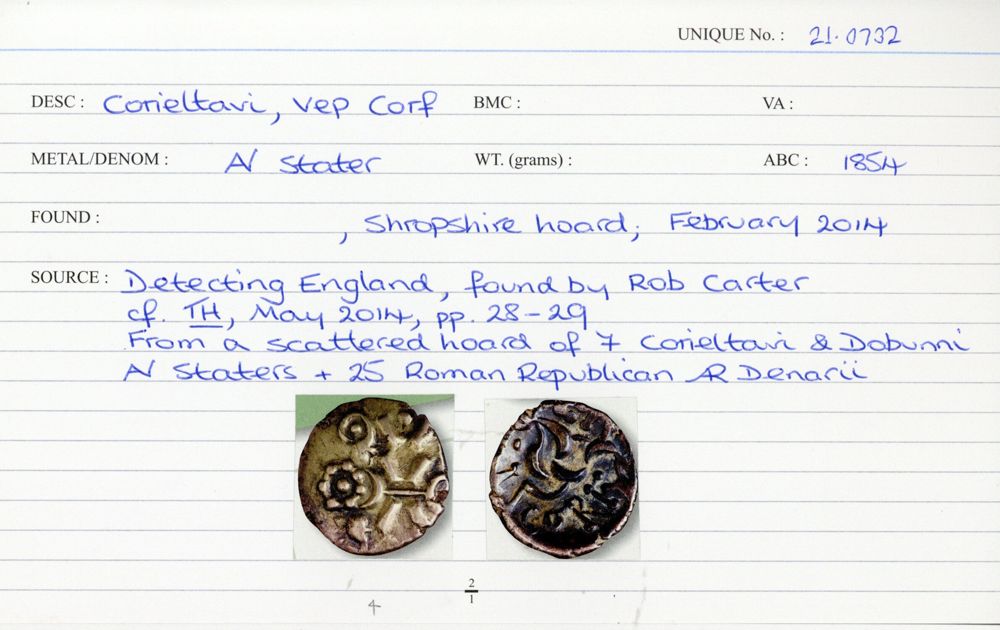 UNIQUE No. : 21.0732
DESC : Corieltavi, Vep Corf BMC : VA :
METAL/DENOM : AV Stater WT. (grams) : ABC : 1854
FOUND : , Shropshire hoard; February 2014
SOURCE : Detecting England, found by Rob Carter
cf. TH, May 2014, pp. 28-29
From a scattered hoard of 7 Corieltavi & Dobunni
AV Staters + 25 Roman Republican AR Denarii
2
1
4